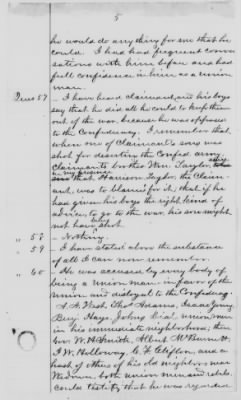 5
he would do anything for me that he
could. I had had frequent conver
sations with him before and had
full confidence in him as a union
man.
Ques 57 - I have heard claimant and his boys
say that he did all he could to keep them
out of the war, because he was opposed
to the Confederacy. I remember that
when one of Claimant's sons was
shot for deserting the Confed. army
claimant's brother Wm. Taylor
in my presence
that Harrison Taylor, the Claim-
ant, was to blame for it, that if he
had given his boys the right kind of
advice, to go to the war, his son might
not have been shot.
" 58 - Nothing.
" 59 - I have stated above the substance
of all I can now remember.
" 60 - He was accused by every body of
being a union man in favor of the
union and disloyal to the Confederacy.
Thos Adams, Isaac Young
Benj Hays, John Dial, union men
in his immediate neighborhood, then
Gov. W. H. Smith, Albert McBurnett,
J. W. Holloway, C. F. Clifton, and a
host of others of his old neighbors near
Wedowee, both union men and rebels,
could testify that he was regarded